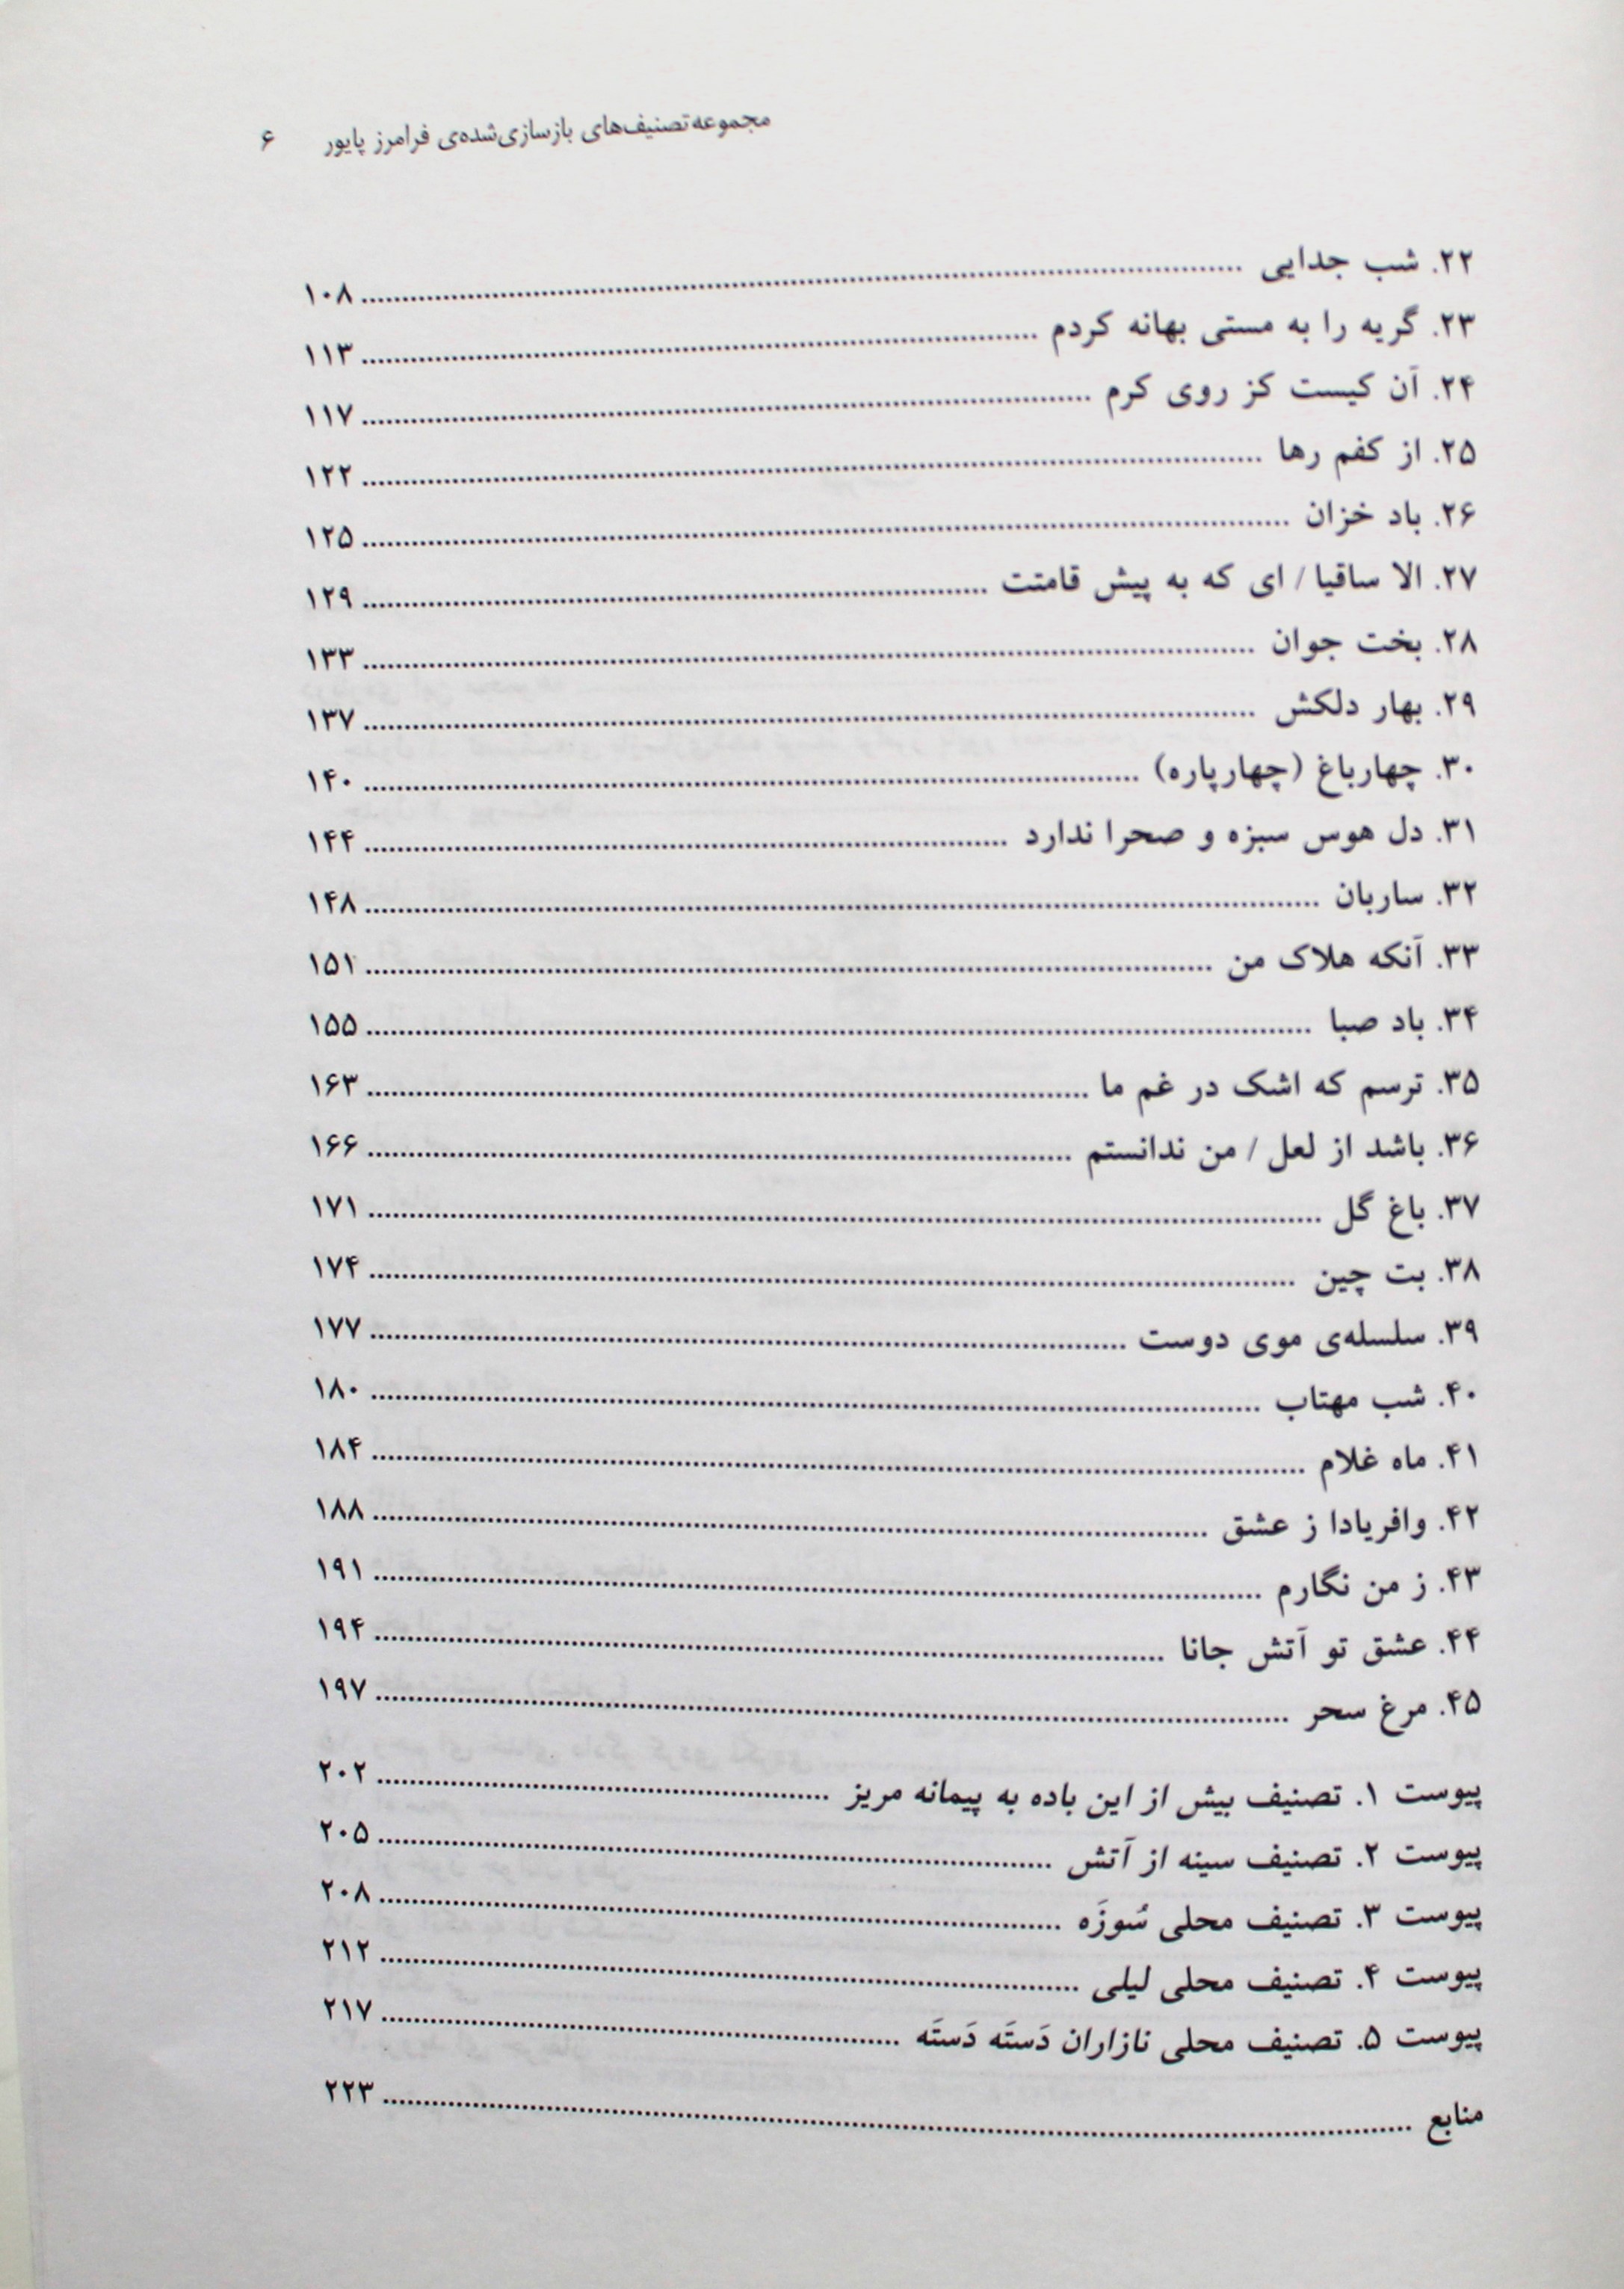 مجموعه تصنیف‌های بازسازی‌شده‌ی فرامرز پایور ۶
۲۲. شب جدایی ........ ۱۰۸
۲۳. گریه را به مستی بهانه کردم ........ ۱۱۳
۲۴. آن کیست کز روی کرم ........ ۱۱۷
۲۵. از کفم رها ........ ۱۲۲
۲۶. باد خزان ........ ۱۲۵
۲۷. الا ساقیا / ای که به پیش قامتت ........ ۱۲۹
۲۸. بخت جوان ........ ۱۳۳
۲۹. بهار دلکش ........ ۱۳۷
۳۰. چهارباغ (چهارپاره) ........ ۱۴۰
۳۱. دل هوس سبزه و صحرا ندارد ........ ۱۴۴
۳۲. ساربان ........ ۱۴۸
۳۳. آنکه هلاک من ........ ۱۵۱
۳۴. باد صبا ........ ۱۵۵
۳۵. ترسم که اشک در غم ما ........ ۱۶۳
۳۶. باشد از لعل / من ندانستم ........ ۱۶۶
۳۷. باغ گل ........ ۱۷۱
۳۸. بت چین ........ ۱۷۴
۳۹. سلسله‌ی موی دوست ........ ۱۷۷
۴۰. شب مهتاب ........ ۱۸۰
۴۱. ماه غلام ........ ۱۸۴
۴۲. وافریادا ز عشق ........ ۱۸۸
۴۳. ز من نگارم ........ ۱۹۱
۴۴. عشق تو آتش جانا ........ ۱۹۴
۴۵. مرغ سحر ........ ۱۹۷
پیوست ۱. تصنیف بیش از این باده به پیمانه مریز ........ ۲۰۲
پیوست ۲. تصنیف سینه از آتش ........ ۲۰۵
پیوست ۳. تصنیف محلی سُوزَه ........ ۲۰۸
پیوست ۴. تصنیف محلی لیلی ........ ۲۱۲
پیوست ۵. تصنیف محلی نازاران دَستَه دَستَه ........ ۲۱۷
منابع ........ ۲۲۳